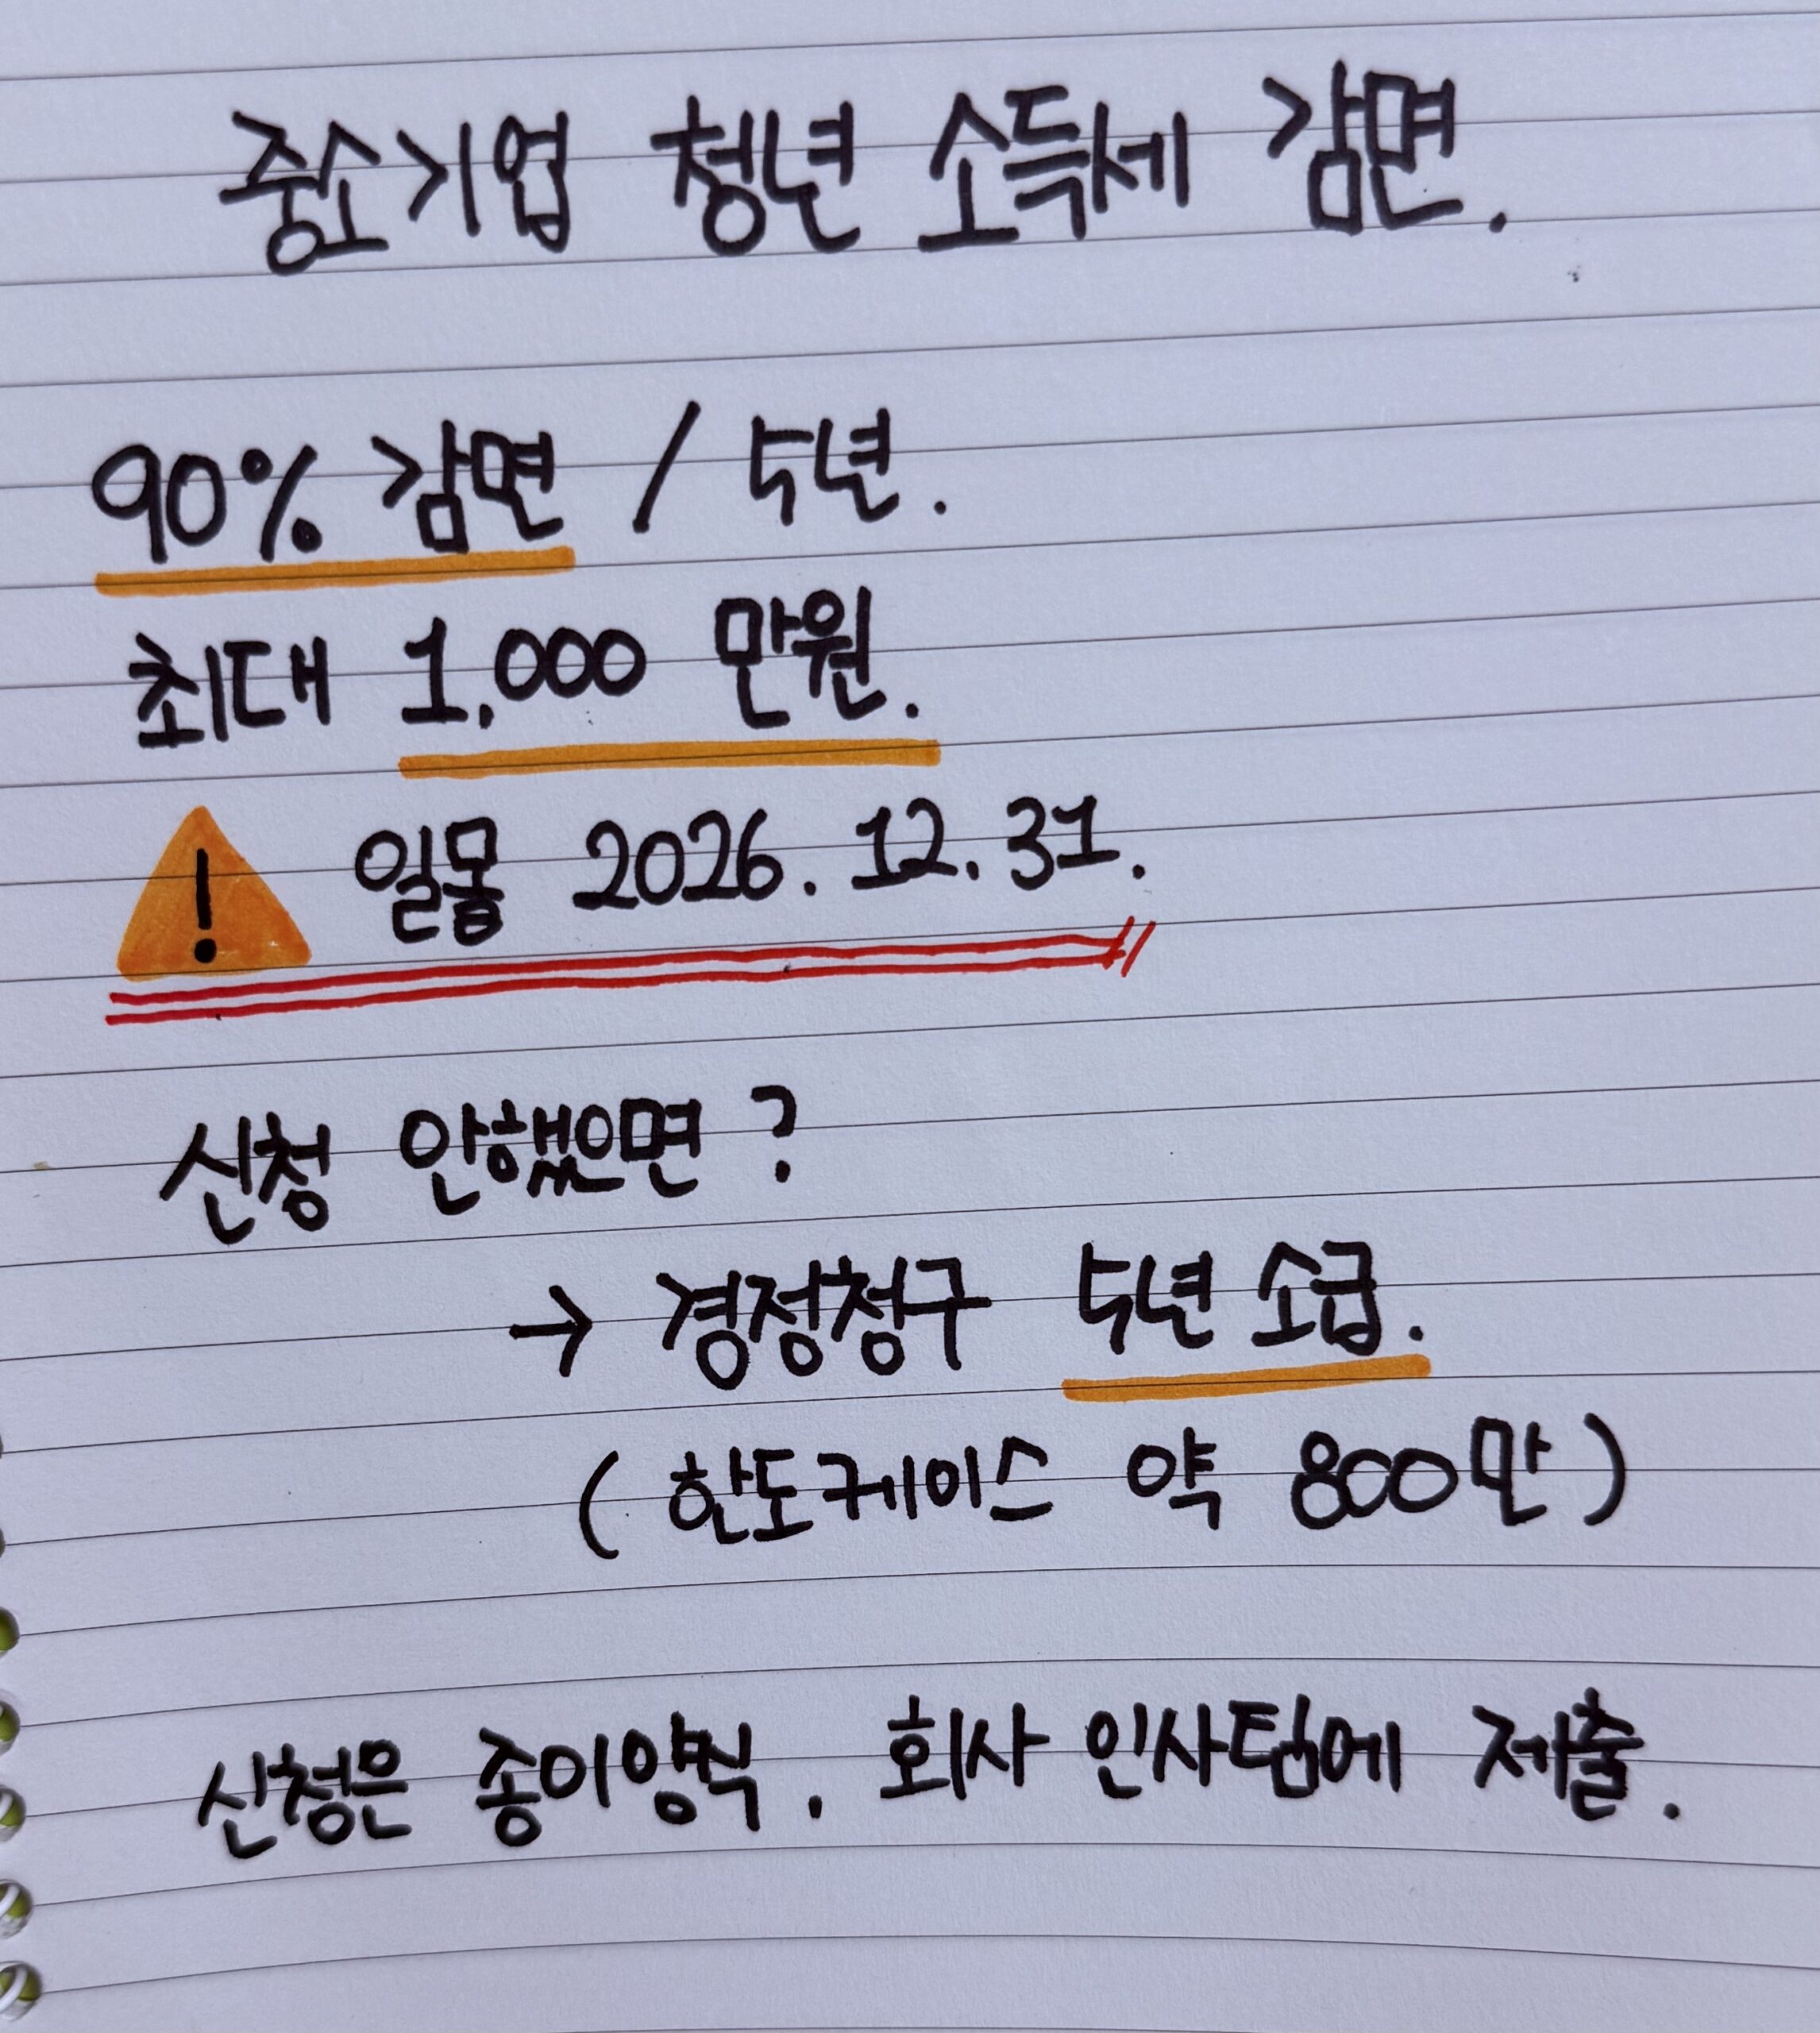 중소기업 청년 소득세 감면.
90% 감면 / 5년.
최대 1,000 만원.
! 일몰 2026. 12. 31.
신청 안했으면?
→ 경정청구 5년 소급.
( 한도케이스 약 800만 )
신청은 종이양식. 회사 인사팀에 제출.